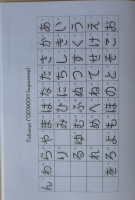 Таблица ГОДЗЮОН (хирагана)
んわらやまはなたさかあ
りみひにちしきい
るゆむふぬつすくう
れめへねてせけえ
をろよもほのとそこお